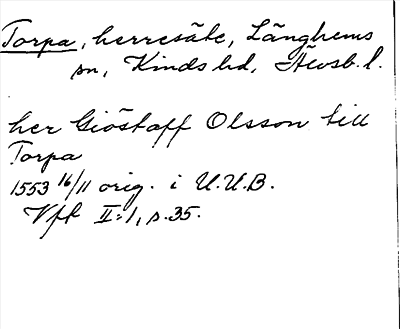 Torpa, herresäte, Länghems
sn, Kinds hd, Älvsb. l.
her Giöstaff Olsson till
Torpa
1553 16/11 orig. i U.U.B.
Vfk II:1, s. 35.